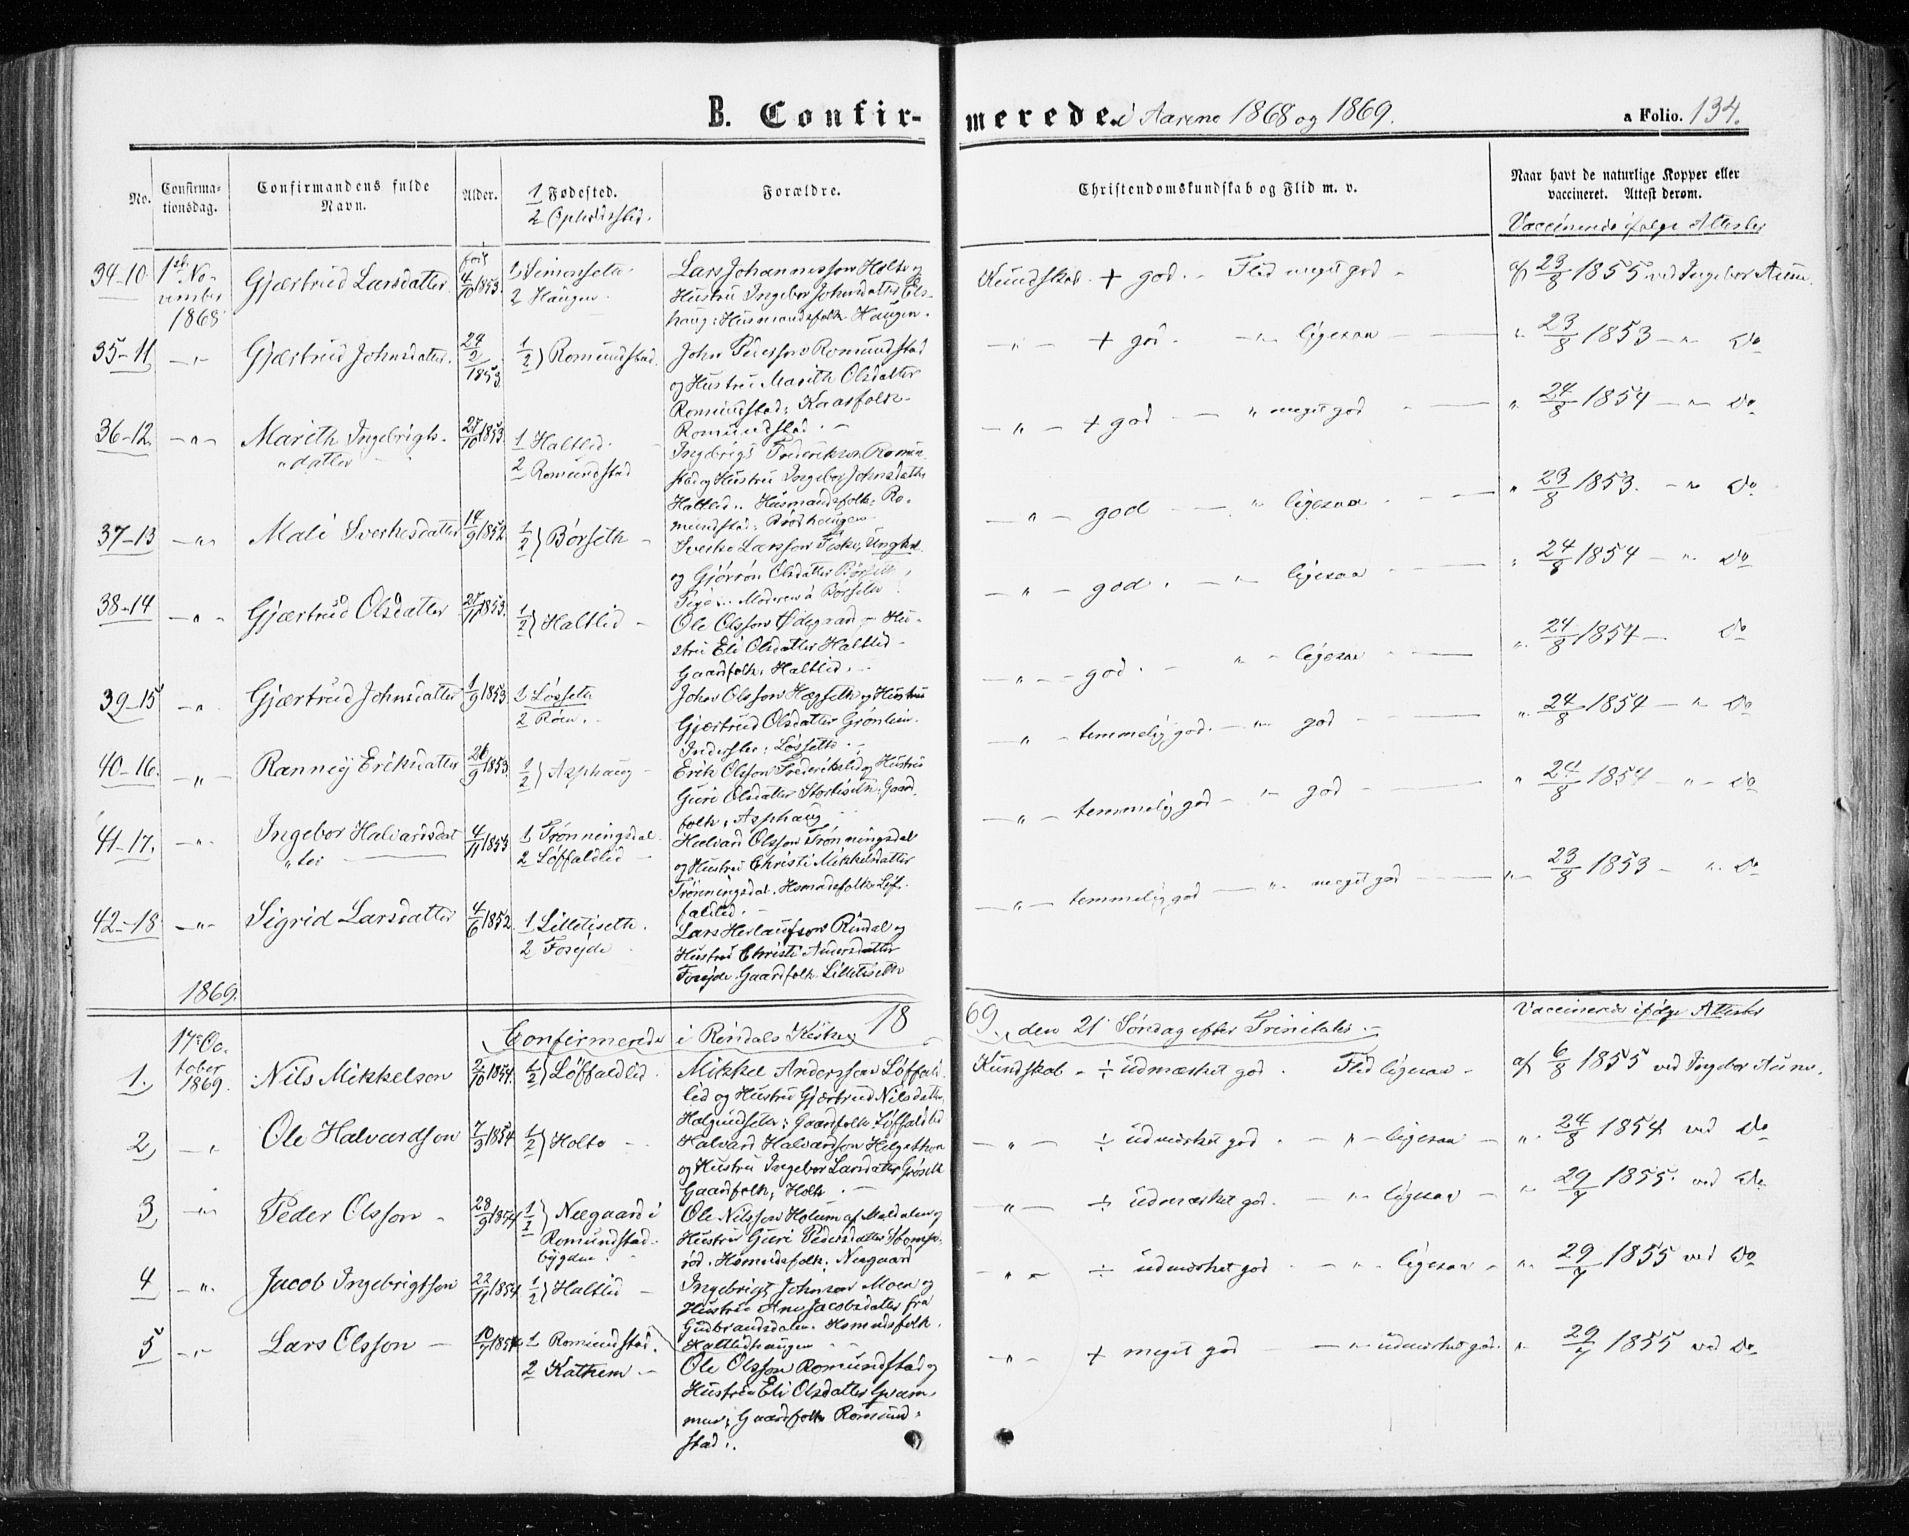 B. Confir-
merede. i Aarene 1868 og 1869.
a Folio. 134.
No.
Confirma-
tionsdag.
Confirmandens fulde
Navn.
Alder.
1 Fødested.
2 Opholdssted.
Forældre.
Christendomskundskab og Flid m. v.
Naar havt de naturlige Kopper eller
vaccineret. Attest derom.
Vaccinerede ifølge Attester
34-10
1ste No-
vember
1868
Gjærtrud Larsdatter
4/10 1853.
2 Haugen
Lars Johannesson Holte og
Hustru Ingebor Johnsdatter
haug: Husmandsfolk Haugen.
Kundskab + god - Flid meget god -
af 23/8 1855 ved Ingebor Aune.
35-11
Gjærtrud Johnsdatter.
24/2 1853.
1/2 } Romundstad
John Pedersson Romundstad
og Hustru Marith Olsdatter
Romundstad; Kaarfolk
Romundstad.
-"- + god. -"- ligesaa
" 23/8 1853 -"- Do
36-12
Marith Ingebrigts-
"datter
1 Haltlid
2 Romundstad
Ingebrigt Frederikson Romun
stad og Hustru Ingebor Johnsdatter
Haltlid. Husmandsfolk; Ro-
mundstad;
-"- + god - " meget god
" 24/8 1854 -"- Do
37-13
Mali Sverkesdatter
14/9 1852
1/2 } Børseth
Sverke Larsson Fiske, Ungkel
og Gjørrøn Olsdatter Børseth
Pige. Moderen à Børseth
-"- god - " ligesaa
" 23/8 1853. -"- Do
38-14
Gjærtrud Olsdatter
1/2 } Haltlid
Ole Olsson Ødegaard - Hu-
stru Eli Olsdatter Haltlid
Gaardfolk, Haltlid.
-"- god. -"- ligesaa
" 24/8 1854 - " Do
39-15
Gjærtrud Johnsdatter
1/9 1853.
1 Løssete
2 Røen.
John Olsson Hægseth og Hustru
Gjærtrud Olsdatter Grønlien
Inderster; Løssette.
-"- god. - " - ligesaa
" 24/8 1854 - Do
40-16.
Rannei Eriksdatter
26/9 1853.
1/2 } Asphaug
Erik Olsson Frederikslid og Hustru
Guri Olsdatter Stortiseth. Gaard
folk; Asphaug
-"- temmelig god. -"- god
" 24/8 1854 -"- Do
41-17.
Ingebor Halvardsdat
"ter
4/11 1853
1 Trønningsdal
2 Løffaldlid
Halvard Olsson Trønningsdal
og Hustru Christi Mikkelsdatter
Trønningsdal. Hsmandsfolk Løf-
faldlid.
-"- temmelig god -"- god
" 24/8 1854 -"- Do
42-18
Sigrid Larsdatter
4/6 1852
1 Lilletiseth.
2 Foseide
Lars Herlaugson Rindal og
Hustru Christi Andersdatter
Foseide. Gaardfolk. Lilletiseth
-"- temmelig god -"- meget god
" 23/8 1853 - ". Do
1869.
Confirmerede i Rindals Kirke 1869. den 21 Søndag efter Trinitatis.
Vaccinerede ifølge Attester
1.
17 Oc-
tober
1869.
Nils Mikkelson
2/10 1854.
1/2 } Løffaldlid.
Mikkel Andersson Løffald-
lid og Hustru Gjærtrud Nilsdatter
Halgundseter; Gaardfolk Løffaldlid
Kundskab - ÷ udmærket god. Flid ligesaa -
af 6/8 1855 ved Ingebor Aune.
2
Ole Halvardson
7/3 1854.
1/2 } Holte
Halvard Halvardsson Helgethon
og Hustru Ingebor Larsdatter Grøset
Gaardfolk; Holte
-"- ÷ udmærket god. -"- ligesaa
" 24/8 1854 ved Do
3
Peder Olsson
28/9 1854
1/2 } Neegaard i
Romundstad-
bygden.
Ole Nilsson Holum af Maldalen og
Hustru Guri Pedersdatter
Hsmandsfolk; Neegaard
-"- ÷ udmærket god. -"- ligesaa
" 29/7 1855. ved Do
4
Jacob Ingebrigtson
22/11 1854
1/2 } Haltlid
Ingebrigt Johnson Moen og
Hustru Ane Jacobsdatter fra
Gudbrandsdalen. Hsmandsfolk.
Haltlidhaugen
-"- ÷ udmærket god. -"- ligesaa
" 29/7 1855 ved Do
5
Lars Olsson
1 Romundstad
2 Kathem
Ole Olsson Romundstad og
Hustru Eli Olsdatter Gram-
mer; Gaardfolk Romund-
stad.
-"- + meget god -"- udmærket god.
" 29/7 1855 ved Do